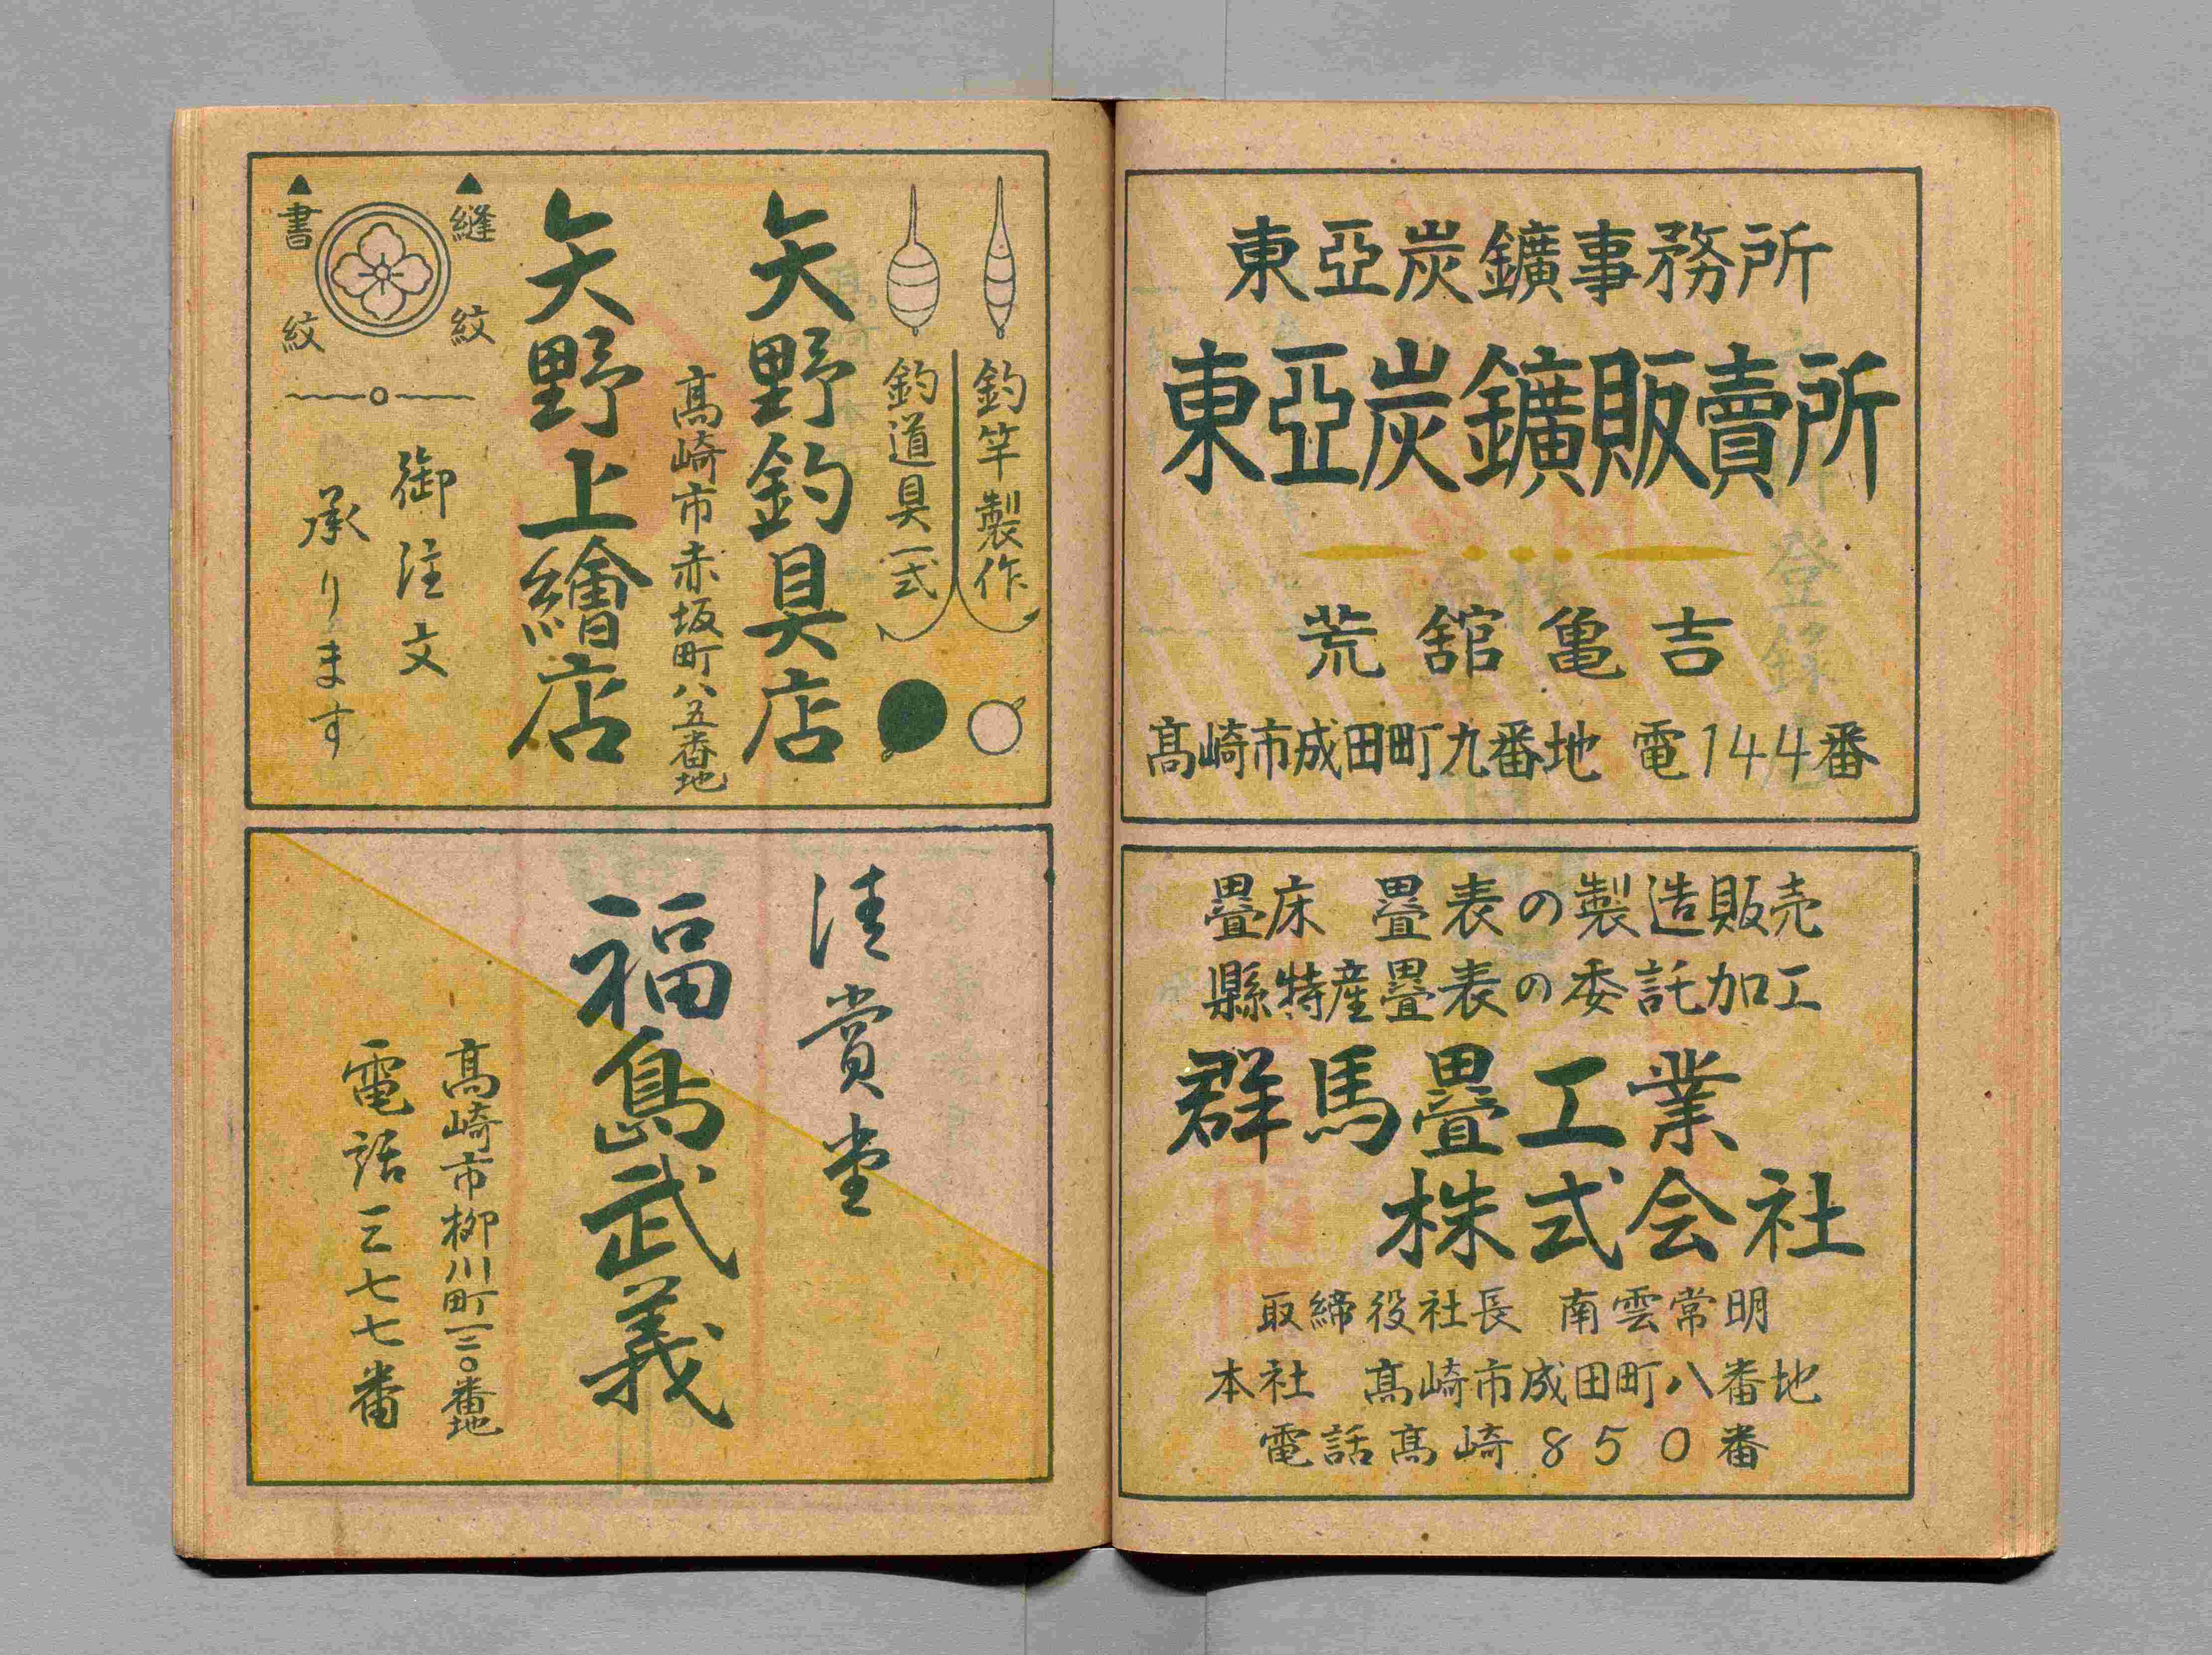 東亞炭鑛事務所
東亞炭鑛販賣所
荒舘亀吉
髙崎市成田町九番地 電144番
畳床 畳表の製造販売
縣特産畳表の委託加工
群馬畳工業
株式会社
取締役社長 南雲常明
本社 髙崎市成田町八番地
電話髙崎850番
釣竿製作
釣道具一式
矢野釣具店
髙崎市赤坂町八五番地
矢野上繪店
縫紋
書紋
御注文
承ります
清賞堂
福島武義
髙崎市柳川町一二〇番地
電話三七七番